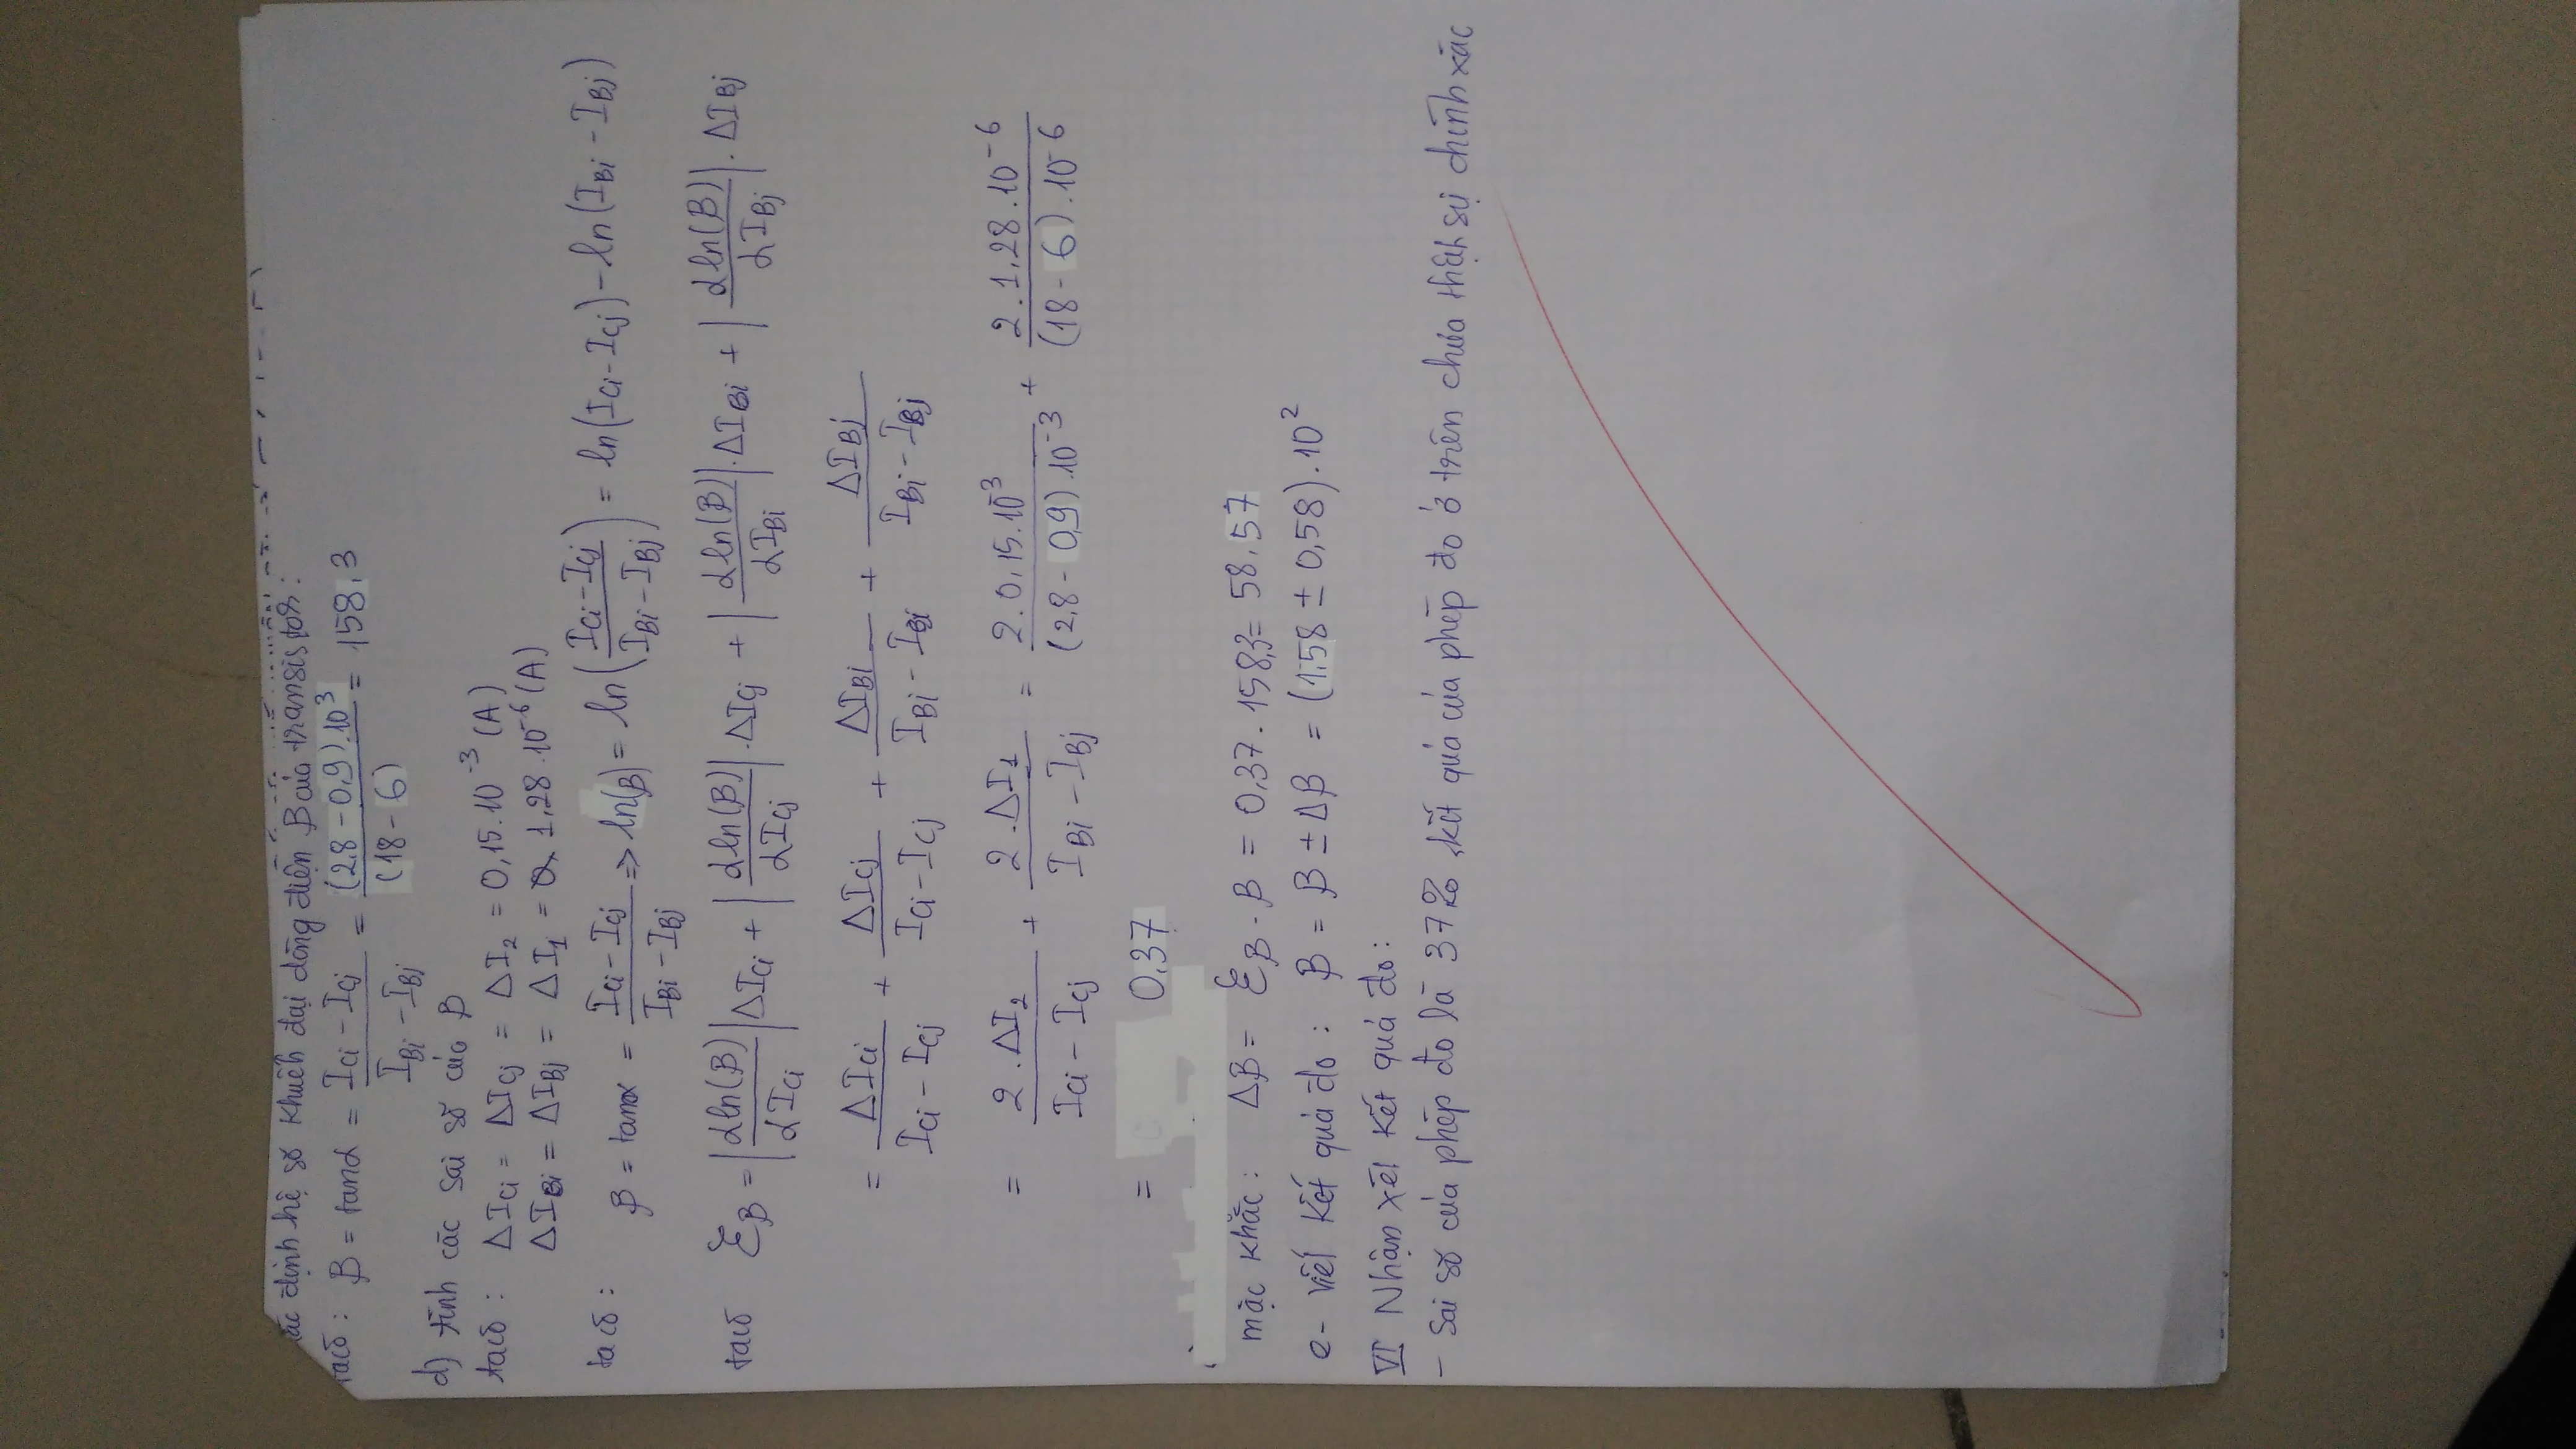 xác định hệ số khuếch đại dòng điện β của transistor:
ta có: β = tanα = (I_Ci − I_Cj)/(I_Bi − I_Bj) = (2,8 − 0,9).10^3/(18 − 6) = 158,3
d) tính các sai số của β
ta có: ΔI_Ci = ΔI_Cj = ΔI_2 = 0,15.10^-3 (A)
ΔI_Bi = ΔI_Bj = ΔI_1 = 1,28.10^-6 (A)
ta có: β = tanα = (I_Ci − I_Cj)/(I_Bi − I_Bj) => ln(β) = ln((I_Ci − I_Cj)/(I_Bi − I_Bj)) = ln(I_Ci − I_Cj) − ln(I_Bi − I_Bj)
ta có ℰ_β = |∂ln(β)/∂I_Ci| ΔI_Ci + |∂ln(β)/∂I_Cj| . ΔI_Cj + |∂ln(β)/∂I_Bi| . ΔI_Bi + |∂ln(β)/∂I_Bj| . ΔI_Bj
= ΔI_Ci/(I_Ci − I_Cj) + ΔI_Cj/(I_Ci − I_Cj) + ΔI_Bi/(I_Bi − I_Bj) + ΔI_Bj/(I_Bi − I_Bj)
= 2.ΔI_2/(I_Ci − I_Cj) + 2.ΔI_1/(I_Bi − I_Bj) = 2.0,15.10^-3/((2,8 − 0,9).10^-3) + 2.1,28.10^-6/((18 − 6).10^-6)
= 0,37
mặc khác: Δβ = ℰ_β . β = 0,37 . 158,3 = 58,57
e- viết kết quả đo: β = β ± Δβ = (1,58 ± 0,58).10^2
VI Nhận xét kết quả đo:
− Sai số của phép đo là 37%, kết quả của phép đo ở trên chưa thật sự chính xác